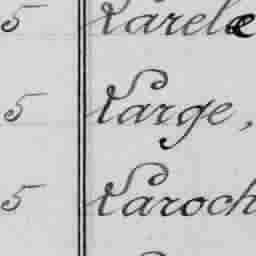 5 Larele
5 Large,
5 Laroch